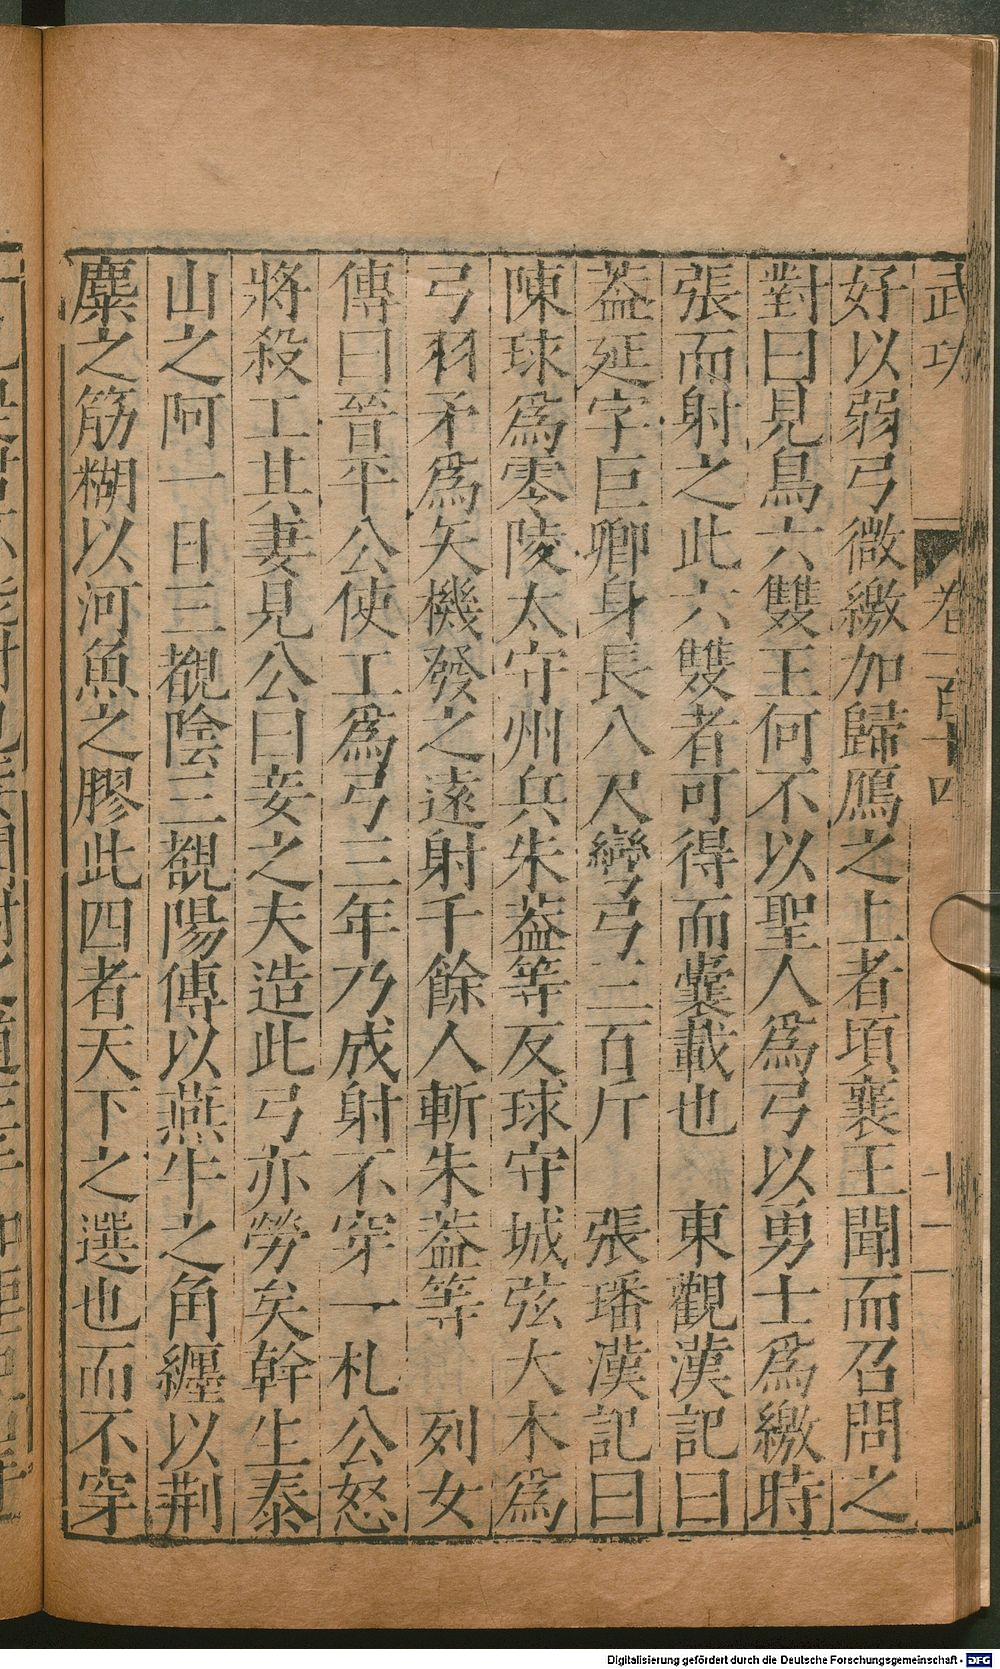 武功
卷一百十四
十二
好以弱弓微繳加歸鴈之上者項襄王聞而召問之
對曰見鳥六雙王何不以聖人爲弓以勇士爲繳時
張而射之此六雙者可得而囊載也　東觀漢記曰
葢延字巨卿身長八尺彎弓三百斤　張璠漢記曰
陳球爲零陵太守州兵朱葢等反球守城弦大木爲
弓羽矛爲矢機發之遠射千餘人斬朱葢等　列女
傳曰晉平公使工爲弓三年乃成射不穿一札公怒
將殺工其妻見公曰妾之夫造此弓亦勞矣幹生泰
山之阿一日三覩陰三覩陽傅以燕牛之角纏以荆
麋之筋糊以河魚之膠此四者天下之選也而不穿
Digitalisierung gefördert durch die Deutsche Forschungsgemeinschaft - DFG